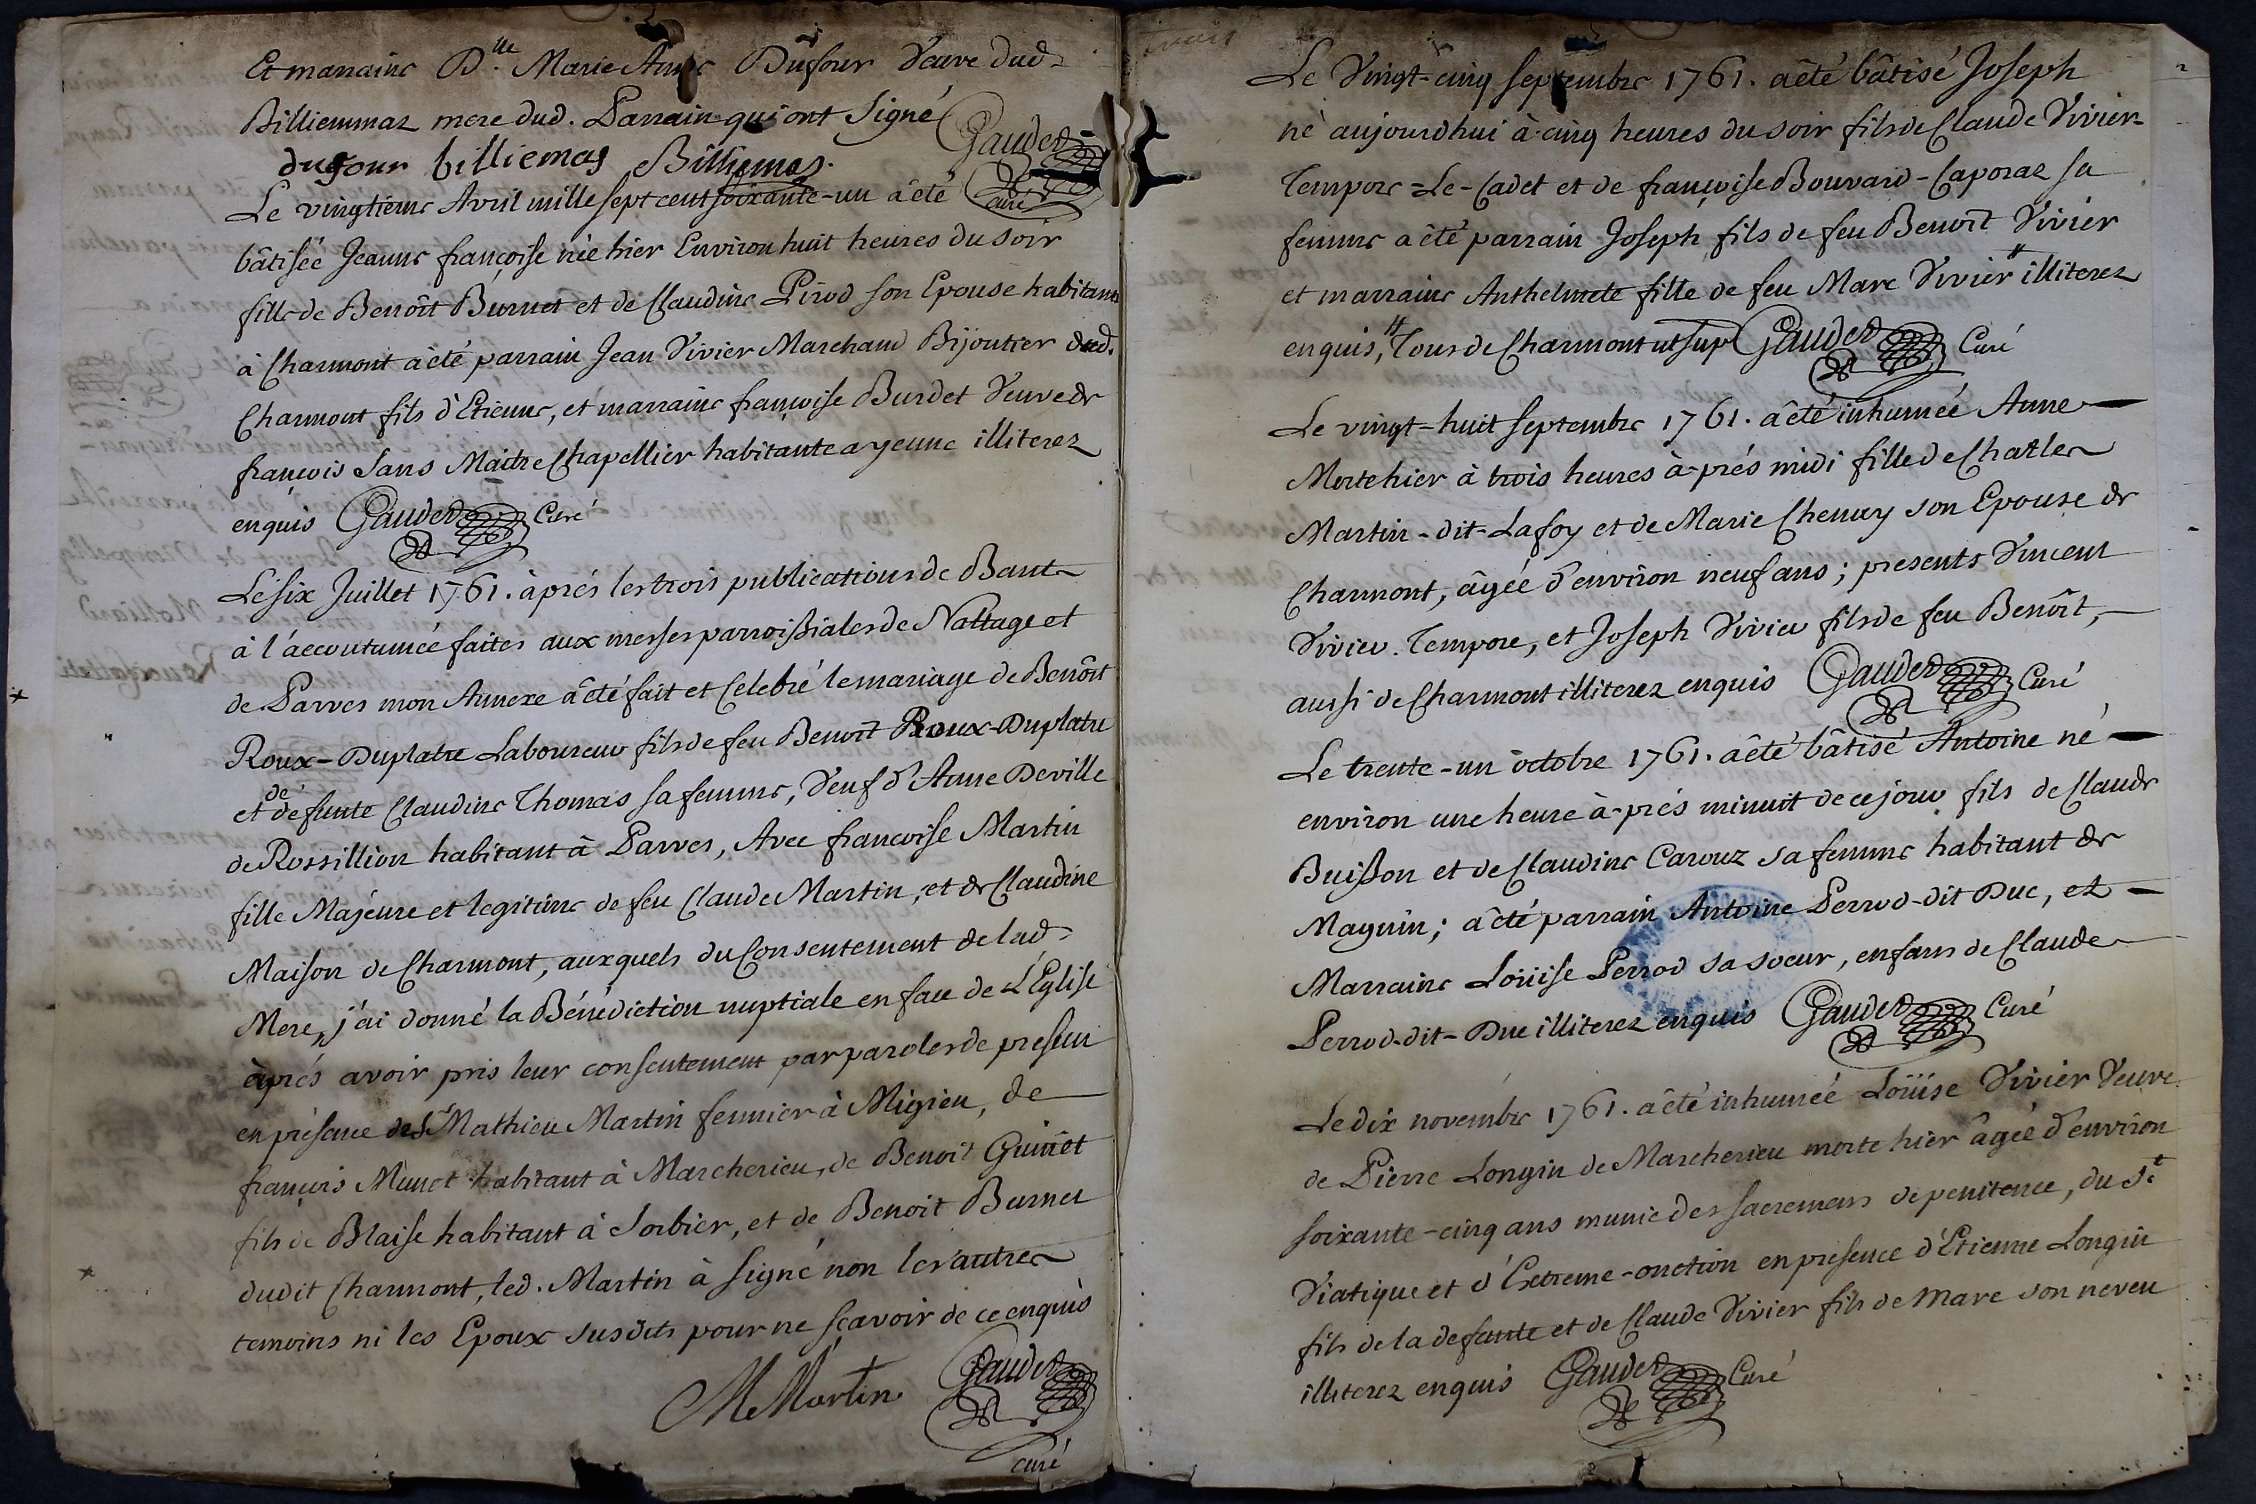 Et marraine D.lle Marie Anne Dufour Veuve dud.
Billiemmaz mere dud. Parrain qui ont signé
dufour billiemas Billiemas. Gauder curé
Le vingtieme Avril mille sept cent soixante-un a êté
bâtiséé Jeanne françoise née hier Environ huit heures du soir
fille de Benôit Burnet et de Claudine Pirod son Epouse habitants
à Charmont a êté parrain Jean Vivier Marchand Bijoutier dud.
Charmont fils d'Etienne, et marraine françoise Burdet Veuve de
françois Sans Maître Chapellier habitante a yenne illiterez
enquis Gauder Curé
Le six Juillet 1761. àprés les trois publications de Bant
à l'áccoutuméé faites aux messes parroissiales de Nattage et
de Parves mon Annexe a êté fait et Celebré le mariage de Benôit
Roux-Duplatre Laboureur fils de feu Benoît Roux-Duplatre
et de défunte Claudine Thomas sa femme, Veuf d'Anne Deville
de Rossillion habitant à Parves, Avec francoise Martin
fille Majéure et legitime de feu Claude Martin, et de Claudine
Maison de Charmont, auxquels du Consentement de lad.
Mere, j'ai donné la Bénédiction nuptiale en face de L'Eglise
àprés avoir pris leur consentement par paroles de present
en présence de Sr Mathieu Martin fermier à Migieu, de
françois Munet habitant à Marcherieu, de Benoit Guinet
fils de Blaise habitant à Sorbier, et de Benoit Burnet
dudit Charmont, led. Martin à signé non les autres
temoins ni les Epoux susdits pour ne sçavoir de ce enquis
M Martin Gauder
curé
Le Vingt-cinq septembre 1761. a êté bâtisé Joseph
né aujourdhui à cinq heures du soir fils de Claude Vivier-
Tempore-Le-Cadet et de françoise Bouvard-Caporaz sa
femme a êté parrain Joseph fils de feu Benoît Vivier
et marraine Anthelmete fille de feu Marc Vivier " illiterez
enquis, " Tous de Charmont ut sup Gauder Curé
Le vingt-huit septembre 1761. a êté inhuméé Anne
Morte hier à trois heures à-prés midi fille de Charles
Martin-dit-Lafoy et de Marie Chenuey son Epouse de
Charmont, âgéé d'environ neuf ans; presents Vincent
Vivier. Tempore, et Joseph Vivier fils de feu Benôit,
aussi de Charmont illiterez enquis Gauder Curé
Le trente-un octobre 1761. a êté bâtisé Antoine né
environ une heure à-prés minuit de ce jour fils de Claude
Buisson et de Claudine Carouz sa femme habitant de
Magnin; a êté parrain Antoine Perrod-dit Duc, et
Marraine Loüise Perrod sa soeur, enfans de Claude
Perrod-dit-Duc illiterez enquis Gauder Curé
Le dix novembre 1761. a êté inhuméé Loüise Vivier Veuve
de Pierre Longin de Marcherieu morte hier âgéé d'environ
soixante-cinq ans munie des sacremens de penitence, du St
Viatique et d'Extreme-onction en presence d'Etienne Longin
fils de la defunte et de Claude Vivier fils de Marc son neveu
illiterez enquis Gauder Curé